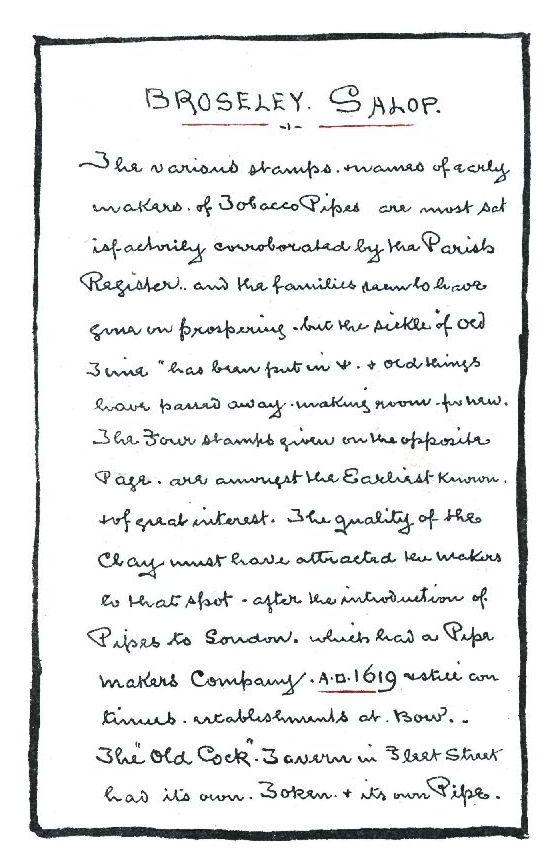 BROSELEY. SALOP.
The various stamps. & names of early
makers. of Tobacco Pipes are most sat
isfactorily corroborated by the Parish
Register.. and the families seem to have
gone on prospering - but the sickle "of old
Time" has been put in &. & old things
have passed away. making room for new.
The Four stamps given on the opposite
Page. are amongst the Earliest known.
& of great interest. The quality of the
Clay must have attracted the makers
to that spot - after the introduction of
Pipes to London. which had a Pipe
makers Company. A.D. 1619 & still con
tinues. establishments at. Bow..
The "Old Cock". Tavern in Fleet Street
had its own. Token. & its own Pipe.